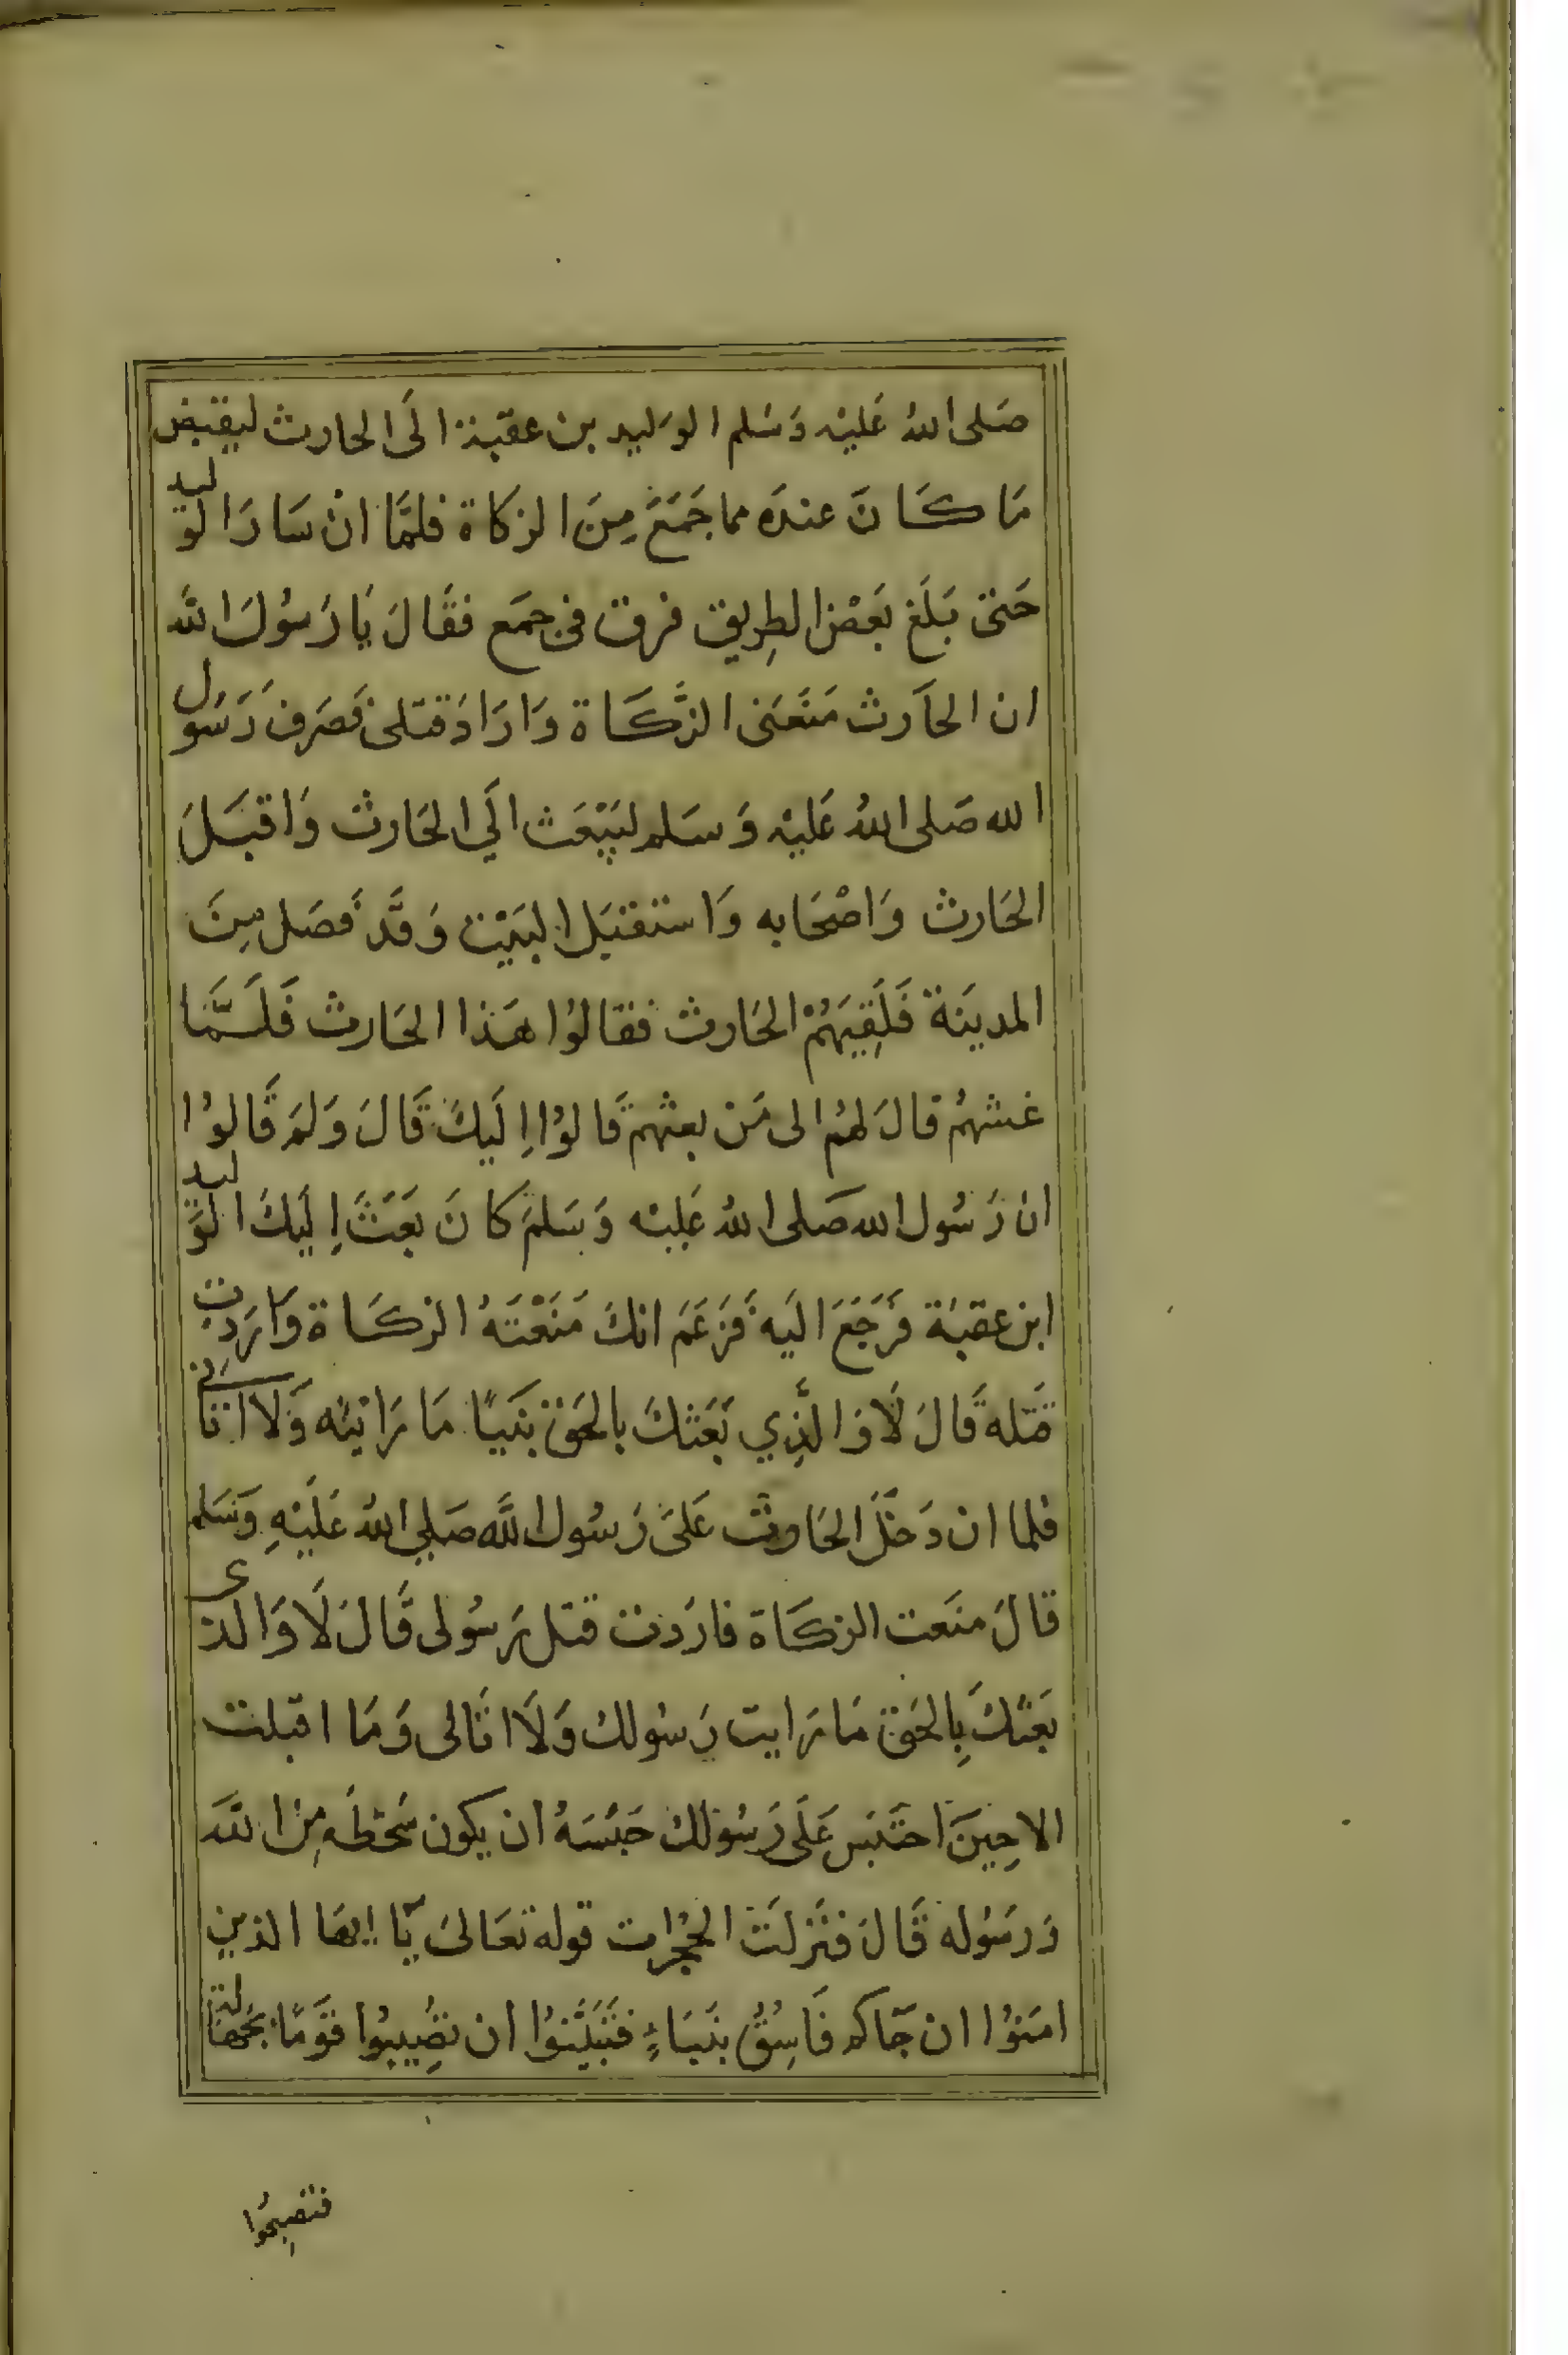 صَلى اللهُ عَليْه وَسَلم الوَليد بن عقبة الَى الحارث ليقبض
مَا كَانَ عندَه مما جَمَعَ مِنَ الزكاة فلمَّا انْ سَارَ الوليد
حَتى بَلَغ بَعْض الطِريق فرق فرجَع فقَالَ يَا رَسُولَ اللَّه
ان الحَارث مَنَعَنى الزَّكَاة وَارَادَ قتلى فَصَرفَ رَسُول
الله صَلى اللهُ عَليْه وَسَلم لبَيْعَث الَي الحَارث وَاقبَلَ
الحَارث وَاصْحَابه وَاستقبَل البَيْت وَقَد فَصَل مِنَ
المدينَة فَلَقِيَهُمْ الحَارث فقالوُا هَذا الحَارث فَلَمَّا
غشهُم قالَ لهُم الى مَن بعثهم قَالوُا اِلَيكَ قَالَ وَلمَ قَالوُا
ان رَسُول الله صَلى اللهُ عَليْه وَسَلمَ كانَ بَعَثَ اِلَيكَ الوَليد
ابن عقبَة فَرَجَعَ الَيه فَزَعَمَ انكَ مَنَعْتَهُ الزكَاة وَارَدت
قَتله قَالَ لَا وَالَّذِي بَعَثكَ بالحَق نبَيًا مَا رَايتُه وَلا اتَانى
فلما ان دَخَلَ الحَارث عَلىَ رَسُول اللَّه صَلي اللهُ عَلَيْهِ وَسَلم
قالَ منَعت الزكَاة فارَدت قتل رَسُولى قَالَ لَا وَالذى
بَعثكَ بِالحَق مَا رَايت رَسُولك وَلَا اتَانى وَمَا اقبلت
الاحِينَ احتَبَس عَلَى رَسُولك حَبْسَهُ ان يكون سَخطَه مِن اللَّه
وَرَسُوله قَالَ فنَزلَت الحُجُرات قوله تعَالىَ يَآ ايهَا الذين
امَنوُا ان جَآكم فَاسِقُ بنَبَاءٍ فتَبَيَّنوُا ان تصُيِبوُا قوَمًا بجَهالة
فتصبِحُوا